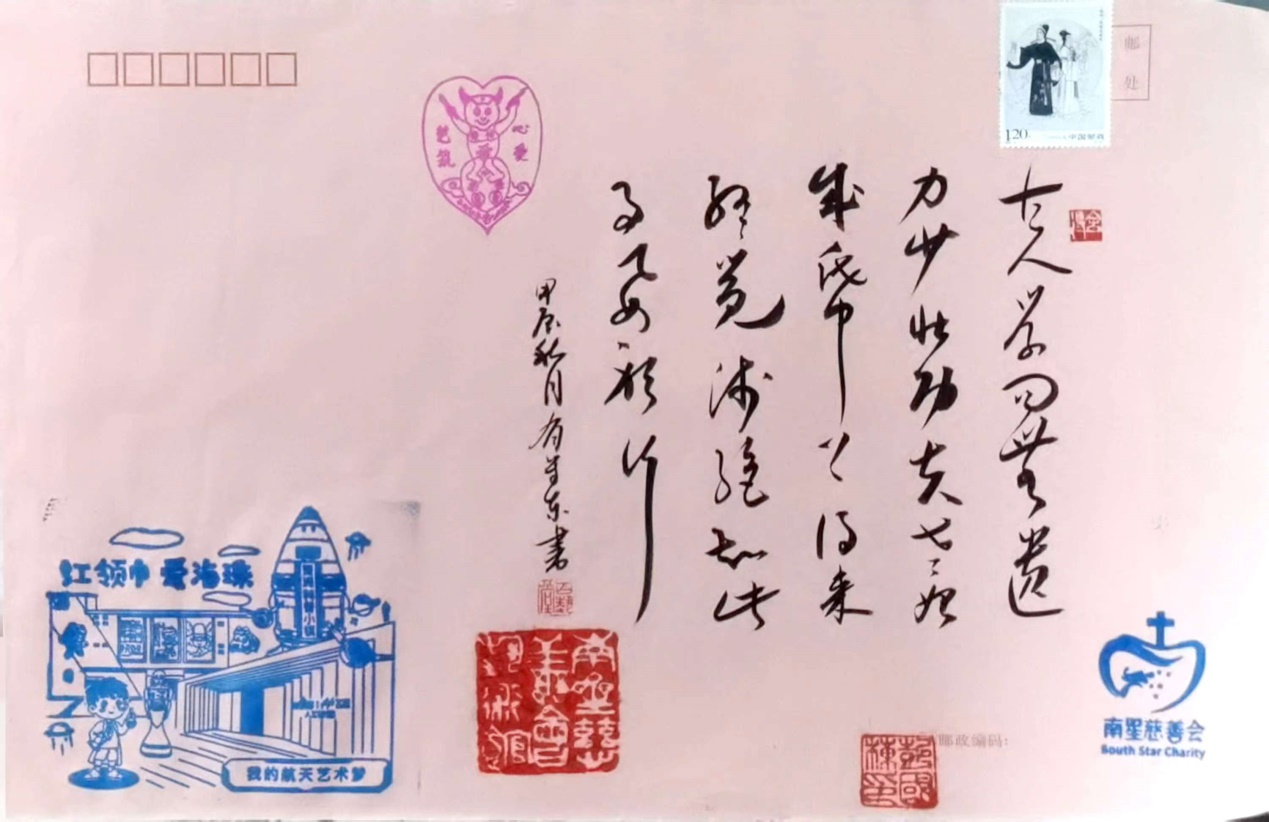 邮
处
1.20
中国邮政
古人学问无遗
力少壮功夫老始
成帋上得来
终觉浅绝知此
事要躬行
甲辰秋月
书
心爱
红领巾 爱海珠
我的航天艺术梦
南星慈
善會
术館
邮政编码:
南星慈善会
South Star Charity